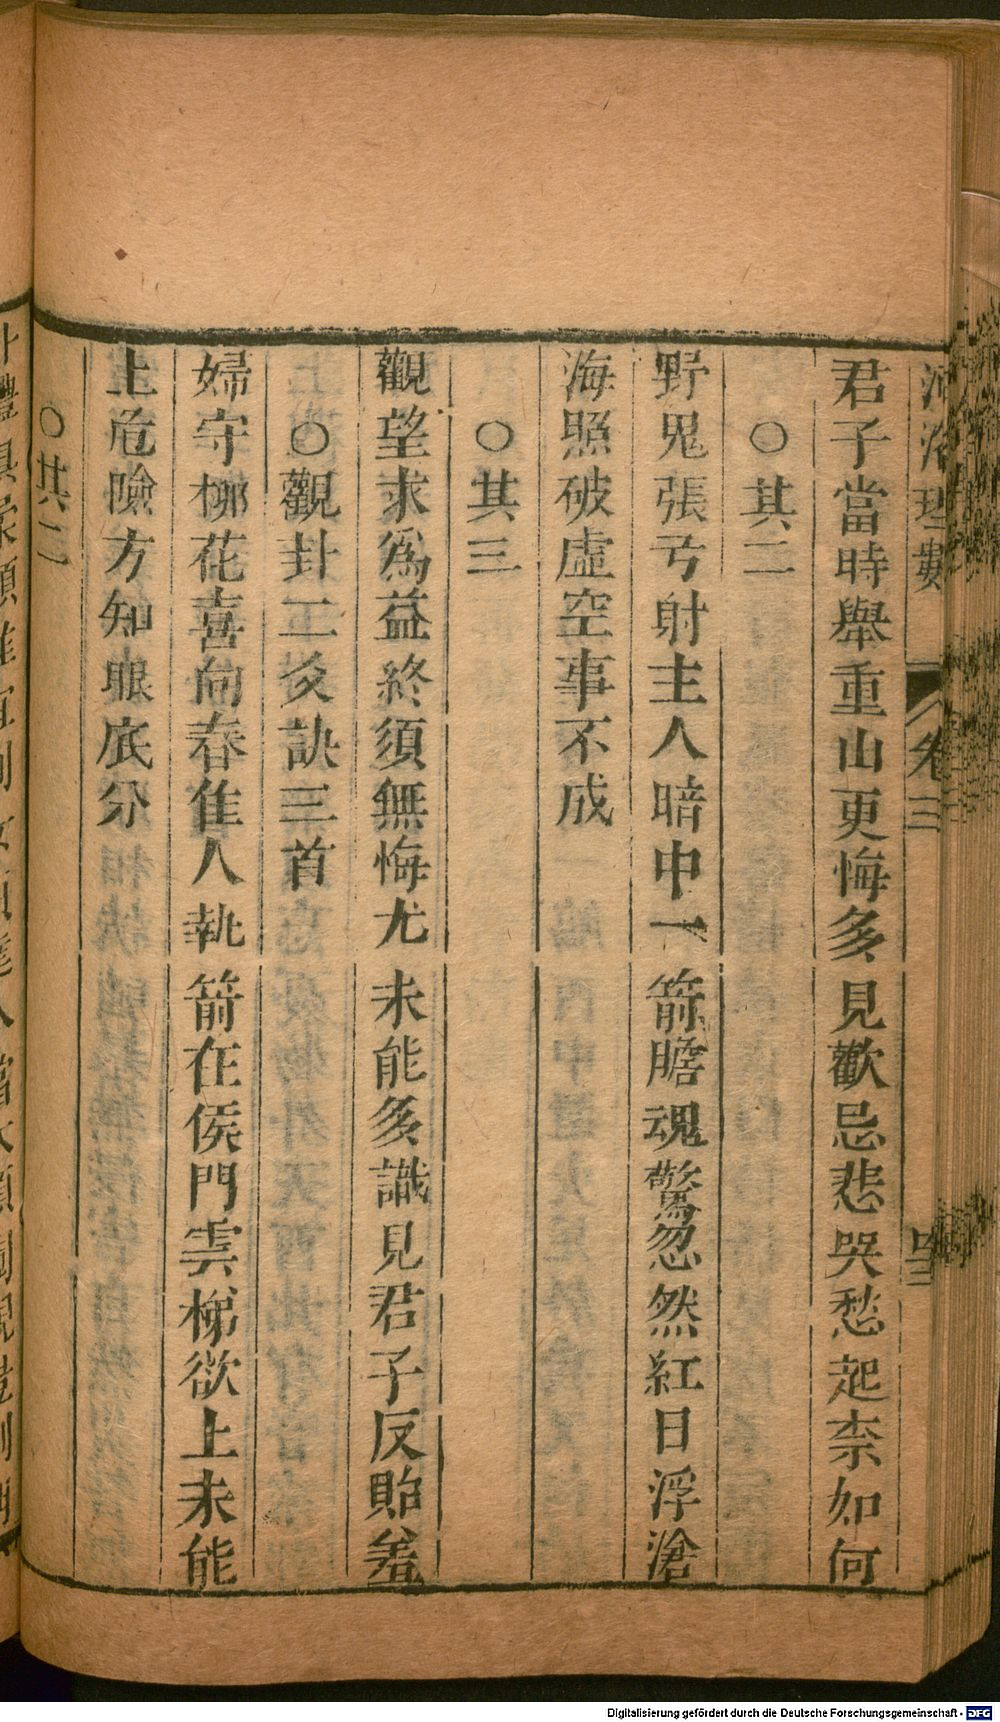 河洛理數 卷三 四三
君子當時舉重山更悔多見歡忌悲哭愁起柰如何
○其二
野鬼張弓射主人暗中一箭膽魂驚忽然紅日浮滄
海照破虛空事不成
○其三
觀望求為益終須無悔尤未能多識見君子反貽羞
○觀卦二爻訣三首
婦守柳花喜向春隹人執箭在侯門雲梯欲上未能
上危險方知眼底分
○其二
Digitalisierung gefördert durch die Deutsche Forschungsgemeinschaft - DFG